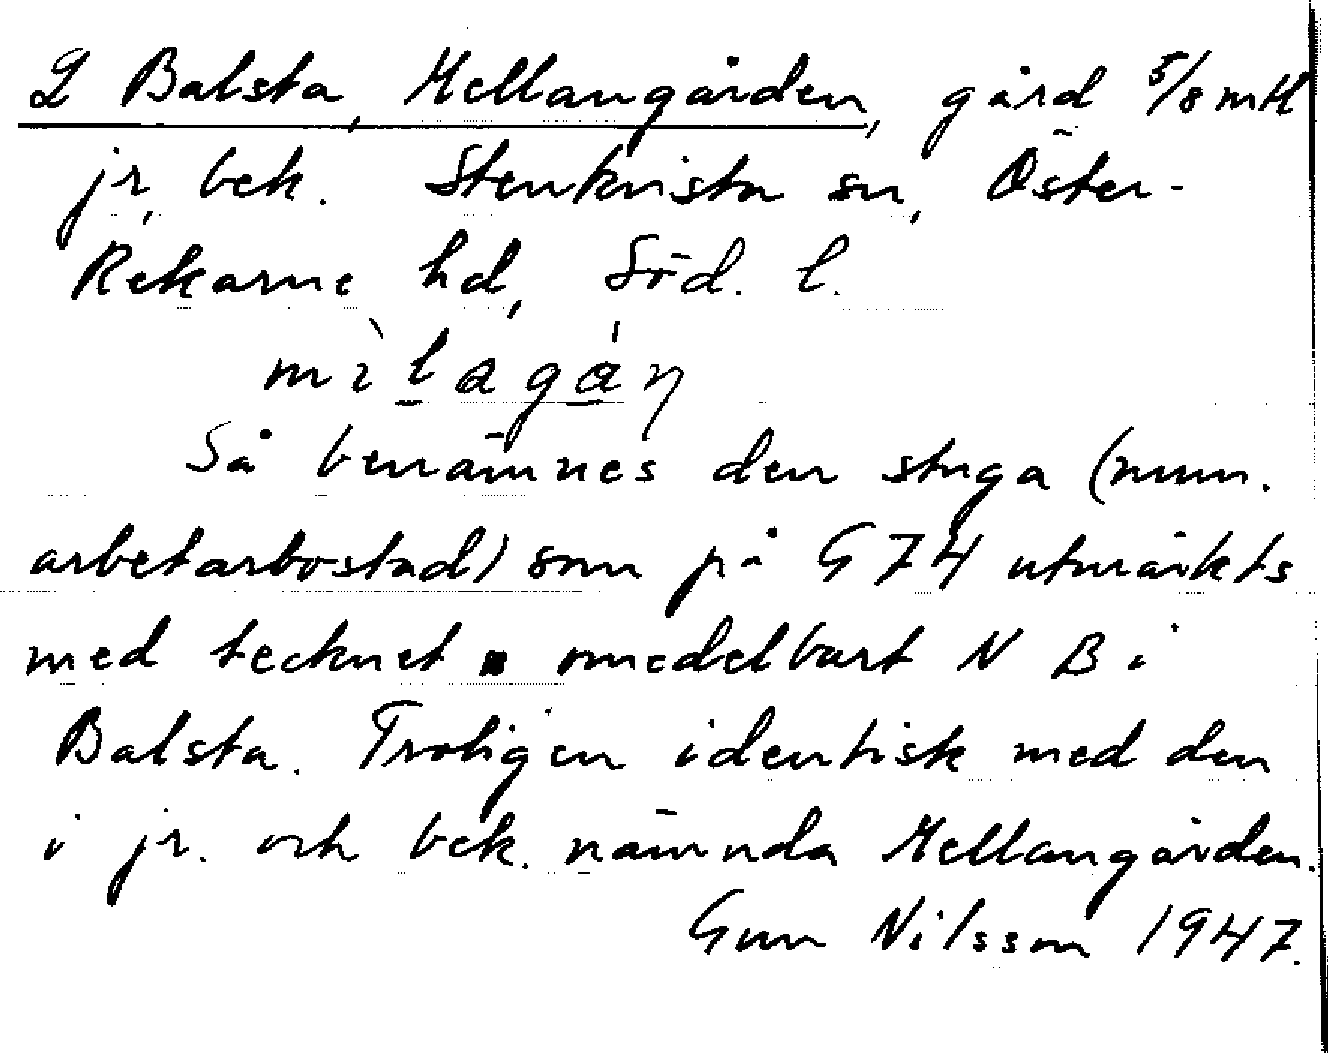 2 Balsta, Mellangården, gård 5/8 mtl
jr, bek. Stenkvista sn, Öster-
Rekarne hd, Söd. l.
Så benämnes den stuga (num.
arbetarbostad) som på G 74 utmärkts
med tecknet ▪ omedelbart N B i
Balsta. Troligen identisk med den
i jr. och bek. nämnda Mellangården.
Gun Nilsson 1947.